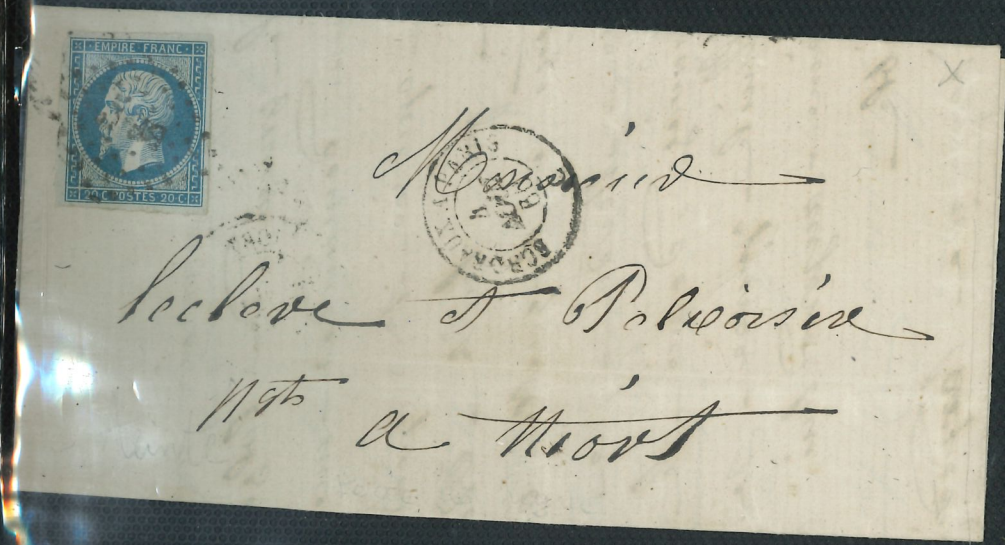 EMPIRE FRANC
20 C POSTES 20 C
BORDEAUX A PARIS
Monsieur
Leclere et
Ngts
a Niort
X